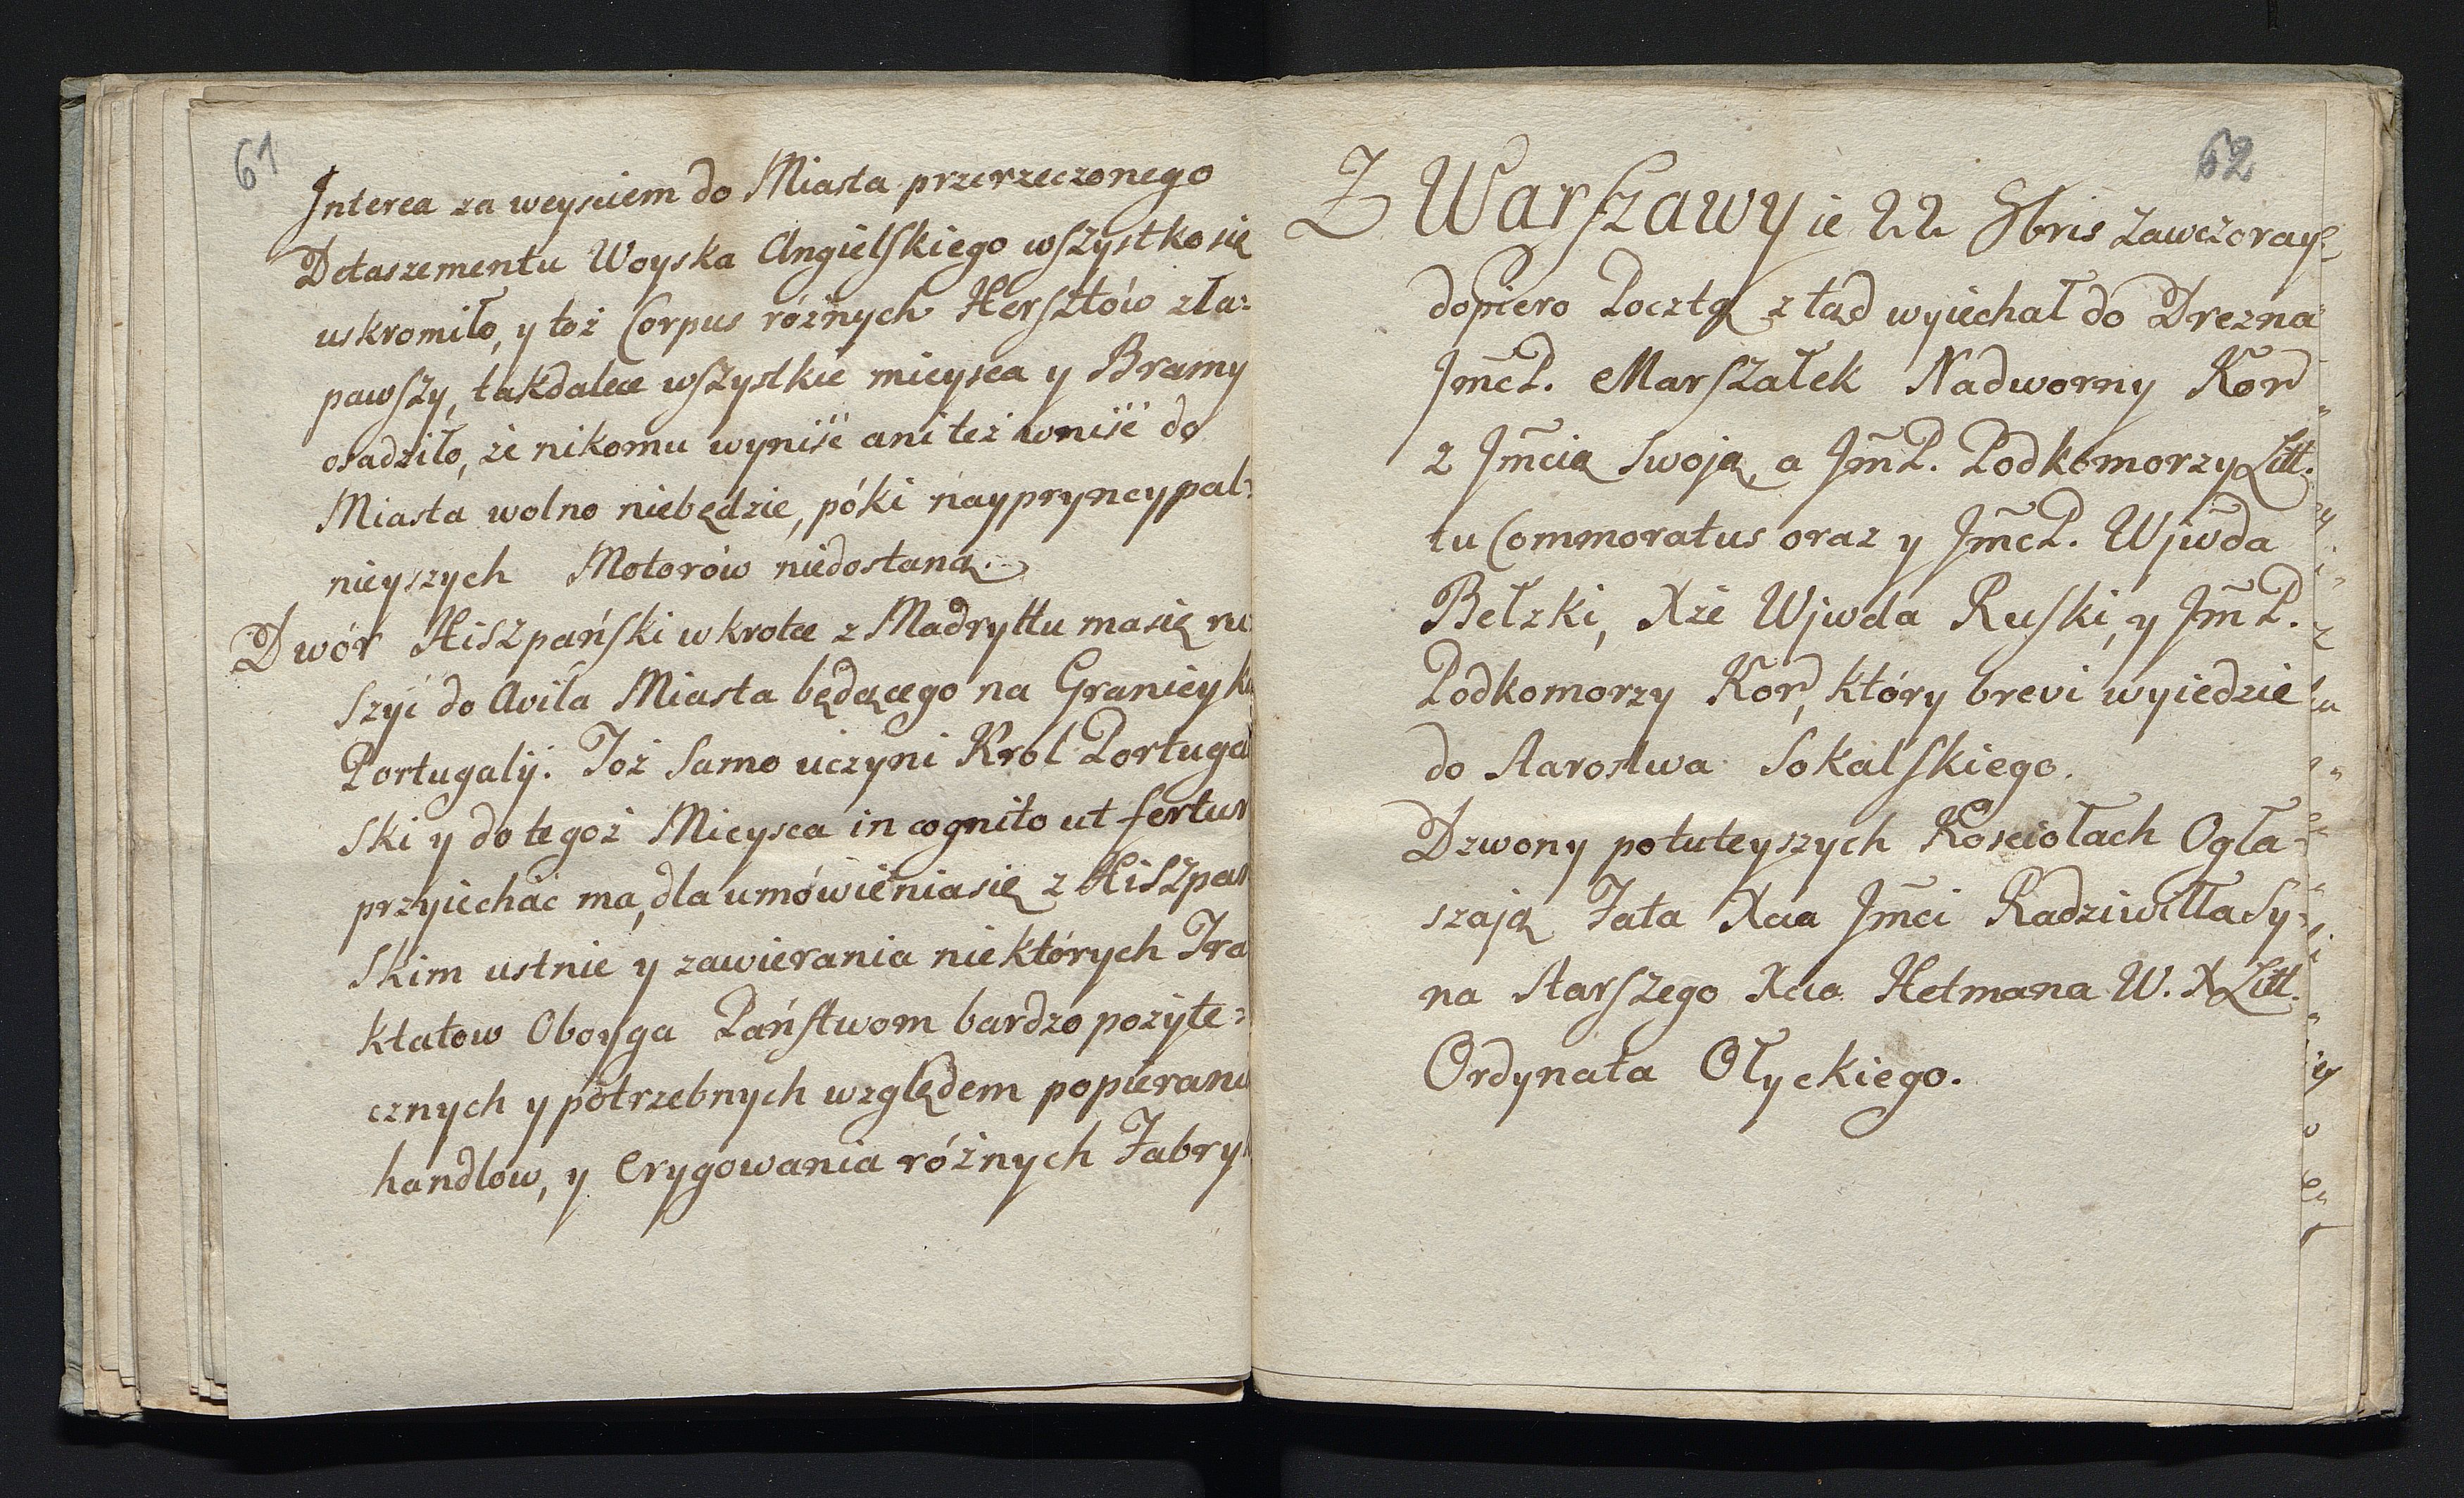 61
Interea za weysciem do Miasta przerzeczonego
Detaszementu Woyska Angielskiego wszystko się
uskromiło, y toż Corpus różnych Hersztów zła=
pawszy, takdalece wszystkie mieysca y Bramy
osadziło, że nikomu wyniść ani też wniść do
Miasta wolno niebędzie, póki naypryncypal=
nieyszych Motorów niedostaną.
Dwór Hiszpański wkrotce z Madryttu masię ru
szyć do Avila Miasta będącego na Granicy ku
Portugalij. Toż samo uczyni Krol Portugal
ski y do tegoż Mieysca in cognito ut fertur
przyiechać ma, dla umówieniasię z Hiszpań
skim ustnie y zawierania niektórych Tra
ktatow Oboyga Państwom bardzo pożyte=
cznych y potrzebnych względem popierani
handlow, y Erygowania różnych Fabryk
62
Z Warszawy ie 22 8bris Zawczoray
dopiero Pocztą z tąd wyiechał do Drezna
JmcP. Marszałek Nadworny Kor
z Jmcią Swoją, a JmP. Podkomorzy Litt.
tu Commoratus oraz y JmcP. Wjwda
Bełzki, Xże Wjwda Ruski, y JmP.
Podkomorzy Kor, który brevi wyiedzie
do Starostwa Sokalskiego.
Dzwony potuteyszych Kościołach Ogła=
szają Fata Xcia Jmci Radziwiłła Sy=
na Starszego Xcia Hetmana W. X Litt.
Ordynata Ołyckiego.